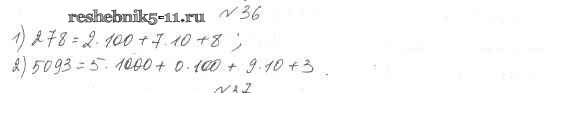 reshebnik5-11.ru
№36
1) 278 = 2·100 + 7·10 + 8 ;
2) 5093 = 5·1000 + 0·100 + 9·10 + 3 .